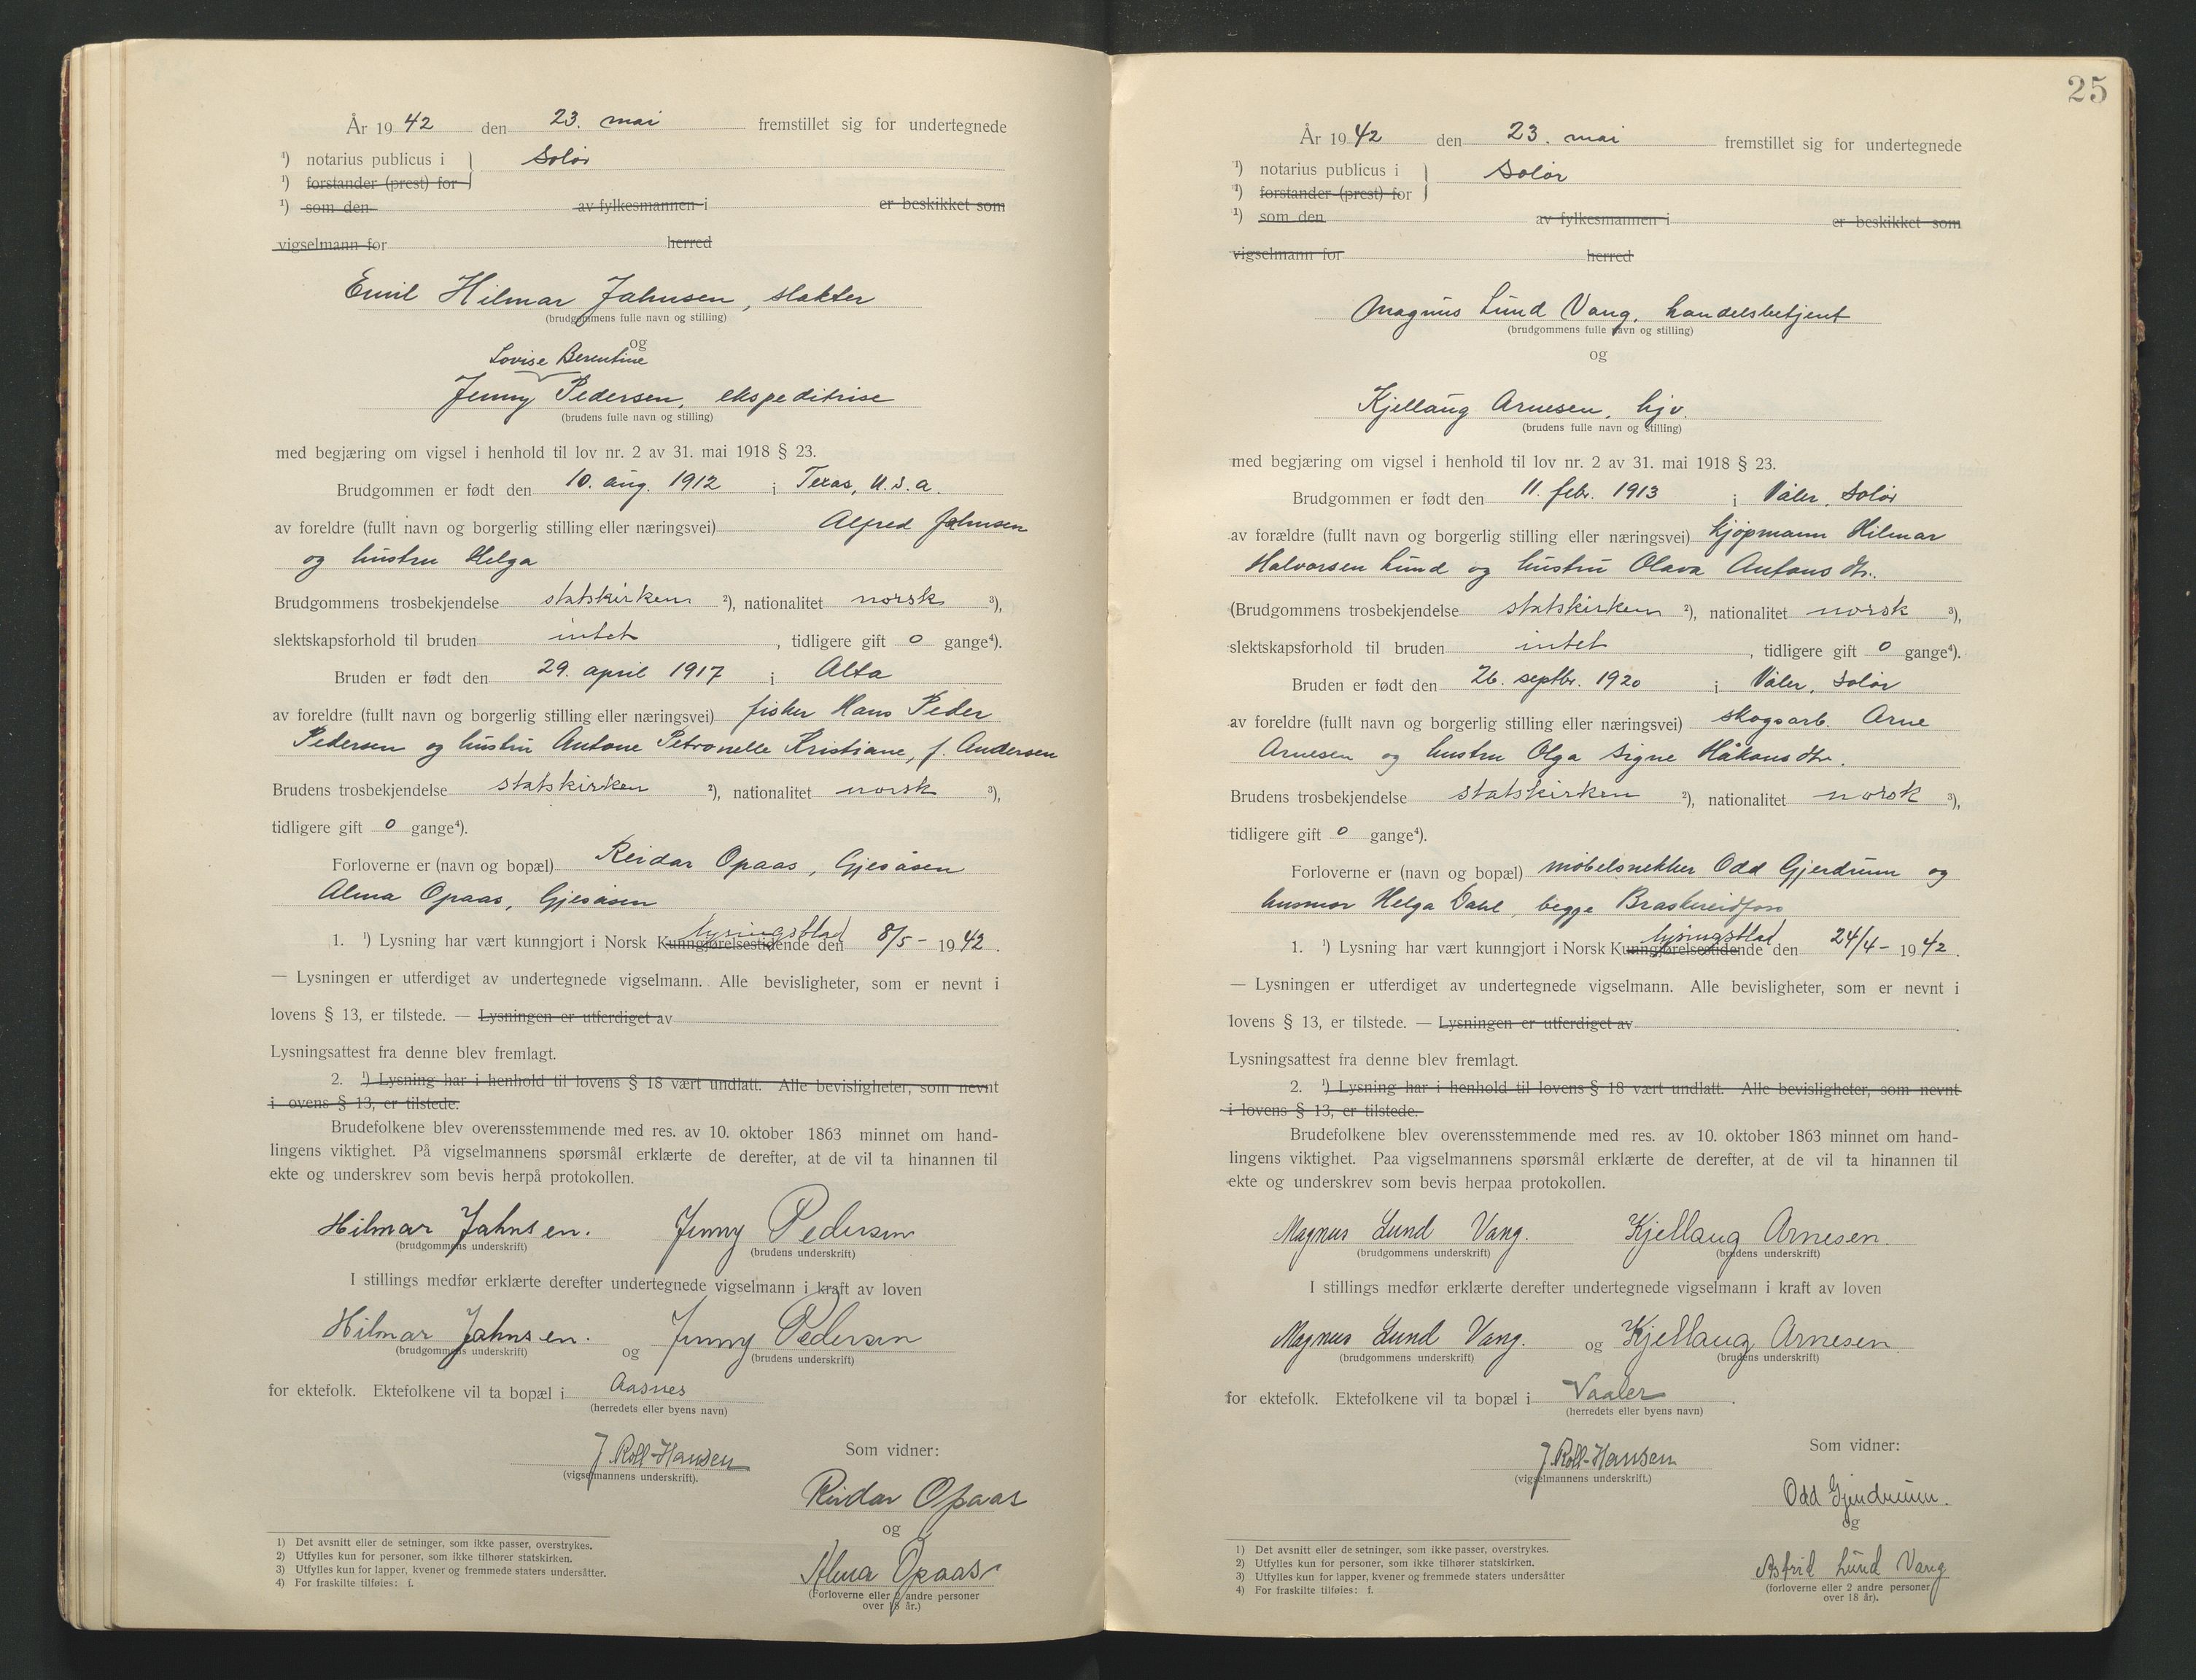 År 19 42 den 23. mai fremstillet sig for undertegnede
¹) notarius publicus i } Solør
¹) forstander (prest) for
¹) som den av fylkesmannen i er beskikket som
vigselmann for herred
Emil Hilmar Jahnsen, slakter
(brudgommens fulle navn og stilling)
og
Lovise Berentine
Jenny Pedersen, ekspeditrise
(brudens fulle navn og stilling)
med begjæring om vigsel i henhold til lov nr. 2 av 31. mai 1918 § 23.
Brudgommen er født den 10. aug. 1912 i Texas, U.S.a.
av foreldre (fullt navn og borgerlig stilling eller næringsvei) Alfred Jahnsen
og hustru Helga
Brudgommens trosbekjendelse statskirken ²), nationalitet norsk ³),
slektskapsforhold til bruden intet, tidligere gift 0 gange⁴).
Bruden er født den 29. april 1917 i Alta
av foreldre (fullt navn og borgerlig stilling eller næringsvei) fisker Hans Peder
Pedersen og hustru Antone Petronelle Kristiane, f. Andersen
Brudens trosbekjendelse statskirken ²), nationalitet norsk ³),
tidligere gift 0 gange⁴).
Forloverne er (navn og bopæl) Reidar Opaas, Gjesåsen
Alma Opaas, Gjesåsen
lysingsblad
1. ¹) Lysning har vært kunngjort i Norsk Kunngjørelsestidende den 8/5 - 1942.
— Lysningen er utferdiget av undertegnede vigselmann. Alle bevisligheter, som er nevnt i
lovens § 13, er tilstede. — Lysningen er utferdiget av
Lysningsattest fra denne blev fremlagt.
2. ¹) Lysning har i henhold til lovens § 18 vært undlatt. Alle bevisligheter, som nevnt
i ovens § 13, er tilstede.
Brudefolkene blev overensstemmende med res. av 10. oktober 1863 minnet om hand-
lingens viktighet. På vigselmannens spørsmål erklærte de derefter, at de vil ta hinannen til
ekte og underskrev som bevis herpå protokollen.
Hilmar Jahnsen. Jenny Pedersen
(brudgommens underskrift) (brudens underskrift)
I stillings medfør erklærte derefter undertegnede vigselmann i kraft av loven
Hilmar Jahnsen. og Jenny Pedersen
(brudgommens underskrift) (brudens underskrift)
for ektefolk. Ektefolkene vil ta bopæl i Aasnes
(herredets eller byens navn)
J. Roll-Hansen
(vigselmannens underskrift).
Som vidner:
Reidar Opaas
og
Alma Opaas
(Forloverne eller 2 andre personer
over 18 år.)
1) Det avsnitt eller de setninger, som ikke passer, overstrykes.
2) Utfylles kun for personer, som ikke tilhører statskirken.
3) Utfylles kun for lapper, kvener og fremmede staters undersåtter.
4) For fraskilte tilføies: f.
25
År 19 42 den 23. mai fremstillet sig for undertegnede
¹) notarius publicus i } Solør
¹) forstander (prest) for
¹) som den av fylkesmannen i er beskikket som
vigselmann for herred
Magnus Lund Vang, handelsbetjent
(brudgommens fulle navn og stilling)
og
Kjellaug Arnesen, hjv.
(brudens fulle navn og stilling)
med begjæring om vigsel i henhold til lov nr. 2 av 31. mai 1918 § 23.
Brudgommen er født den 11. febr. 1913 i Våler, Solør
av forældre (fullt navn og borgerlig stilling eller næringsvei) kjøpmann Hilmar
Halvorsen Lund og hustru Olava Antonsdtr.
(Brudgommens trosbekjendelse statskirken ²), nationalitet norsk ³),
slektskapsforhold til bruden intet, tidligere gift 0 gange⁴).
Bruden er født den 26. septbr. 1920 i Våler, Solør
av foreldre (fullt navn og borgerlig stilling eller næringsvei) skogsarb. Arne
Arnesen og hustru Olga Signe Håkonsdtr.
Brudens trosbekjendelse statskirken ²), nationalitet norsk ³),
tidligere gift 0 gange⁴).
Forloverne er (navn og bopæl) møbelsnekker Odd Gjerdrum og
husmor Helga Dahl, begge Braskereidfoss
lysingsblad
1. ¹) Lysning har vært kunngjort i Norsk Kunngjørelsestidende den 24/4 - 1942.
— Lysningen er utferdiget av undertegnede vigselmann. Alle bevisligheter, som er nevnt i
lovens § 13, er tilstede. — Lysningen er utferdiget av .
Lysningsattest fra denne blev fremlagt.
2. ¹) Lysning har i henhold til lovens § 18 vært undlatt. Alle bevisligheter, som nevnt
i lovens § 13, er tilstede.
Brudefolkene blev overensstemmende med res. av 10. oktober 1863 minnet om hand-
lingens viktighet. Paa vigselmannens spørsmål erklærte de derefter, at de vil ta hinannen til
ekte og underskrev som bevis herpaa protokollen.
Magnus Lund Vang. Kjellaug Arnesen.
(brudgommens underskrift) (brudens underskrift)
I stillings medfør erklærte derefter undertegnede vigselmann i kraft av loven
Magnus Lund Vang. og Kjellaug Arnesen.
(brudgommens underskrift) (brudens underskrift)
for ektefolk. Ektefolkene vil ta bopæl i Vaaler.
(herredets eller byens navn)
J. Roll-Hansen
(vigselmannens underskrift.)
Som vidner:
Odd Gjerdrum.
og
Astrid Lund Vang
(forloverne eller 2 andre personer
over 18 år).
1) Det avsnitt eller de setninger, som ikke passer, overstrykes.
2) Utfylles kun for personer, som ikke tilhører statskirken.
3) Utfylles kun for lapper, kvener og fremmede staters undersåtter
4) For fraskilte tilføies: f.